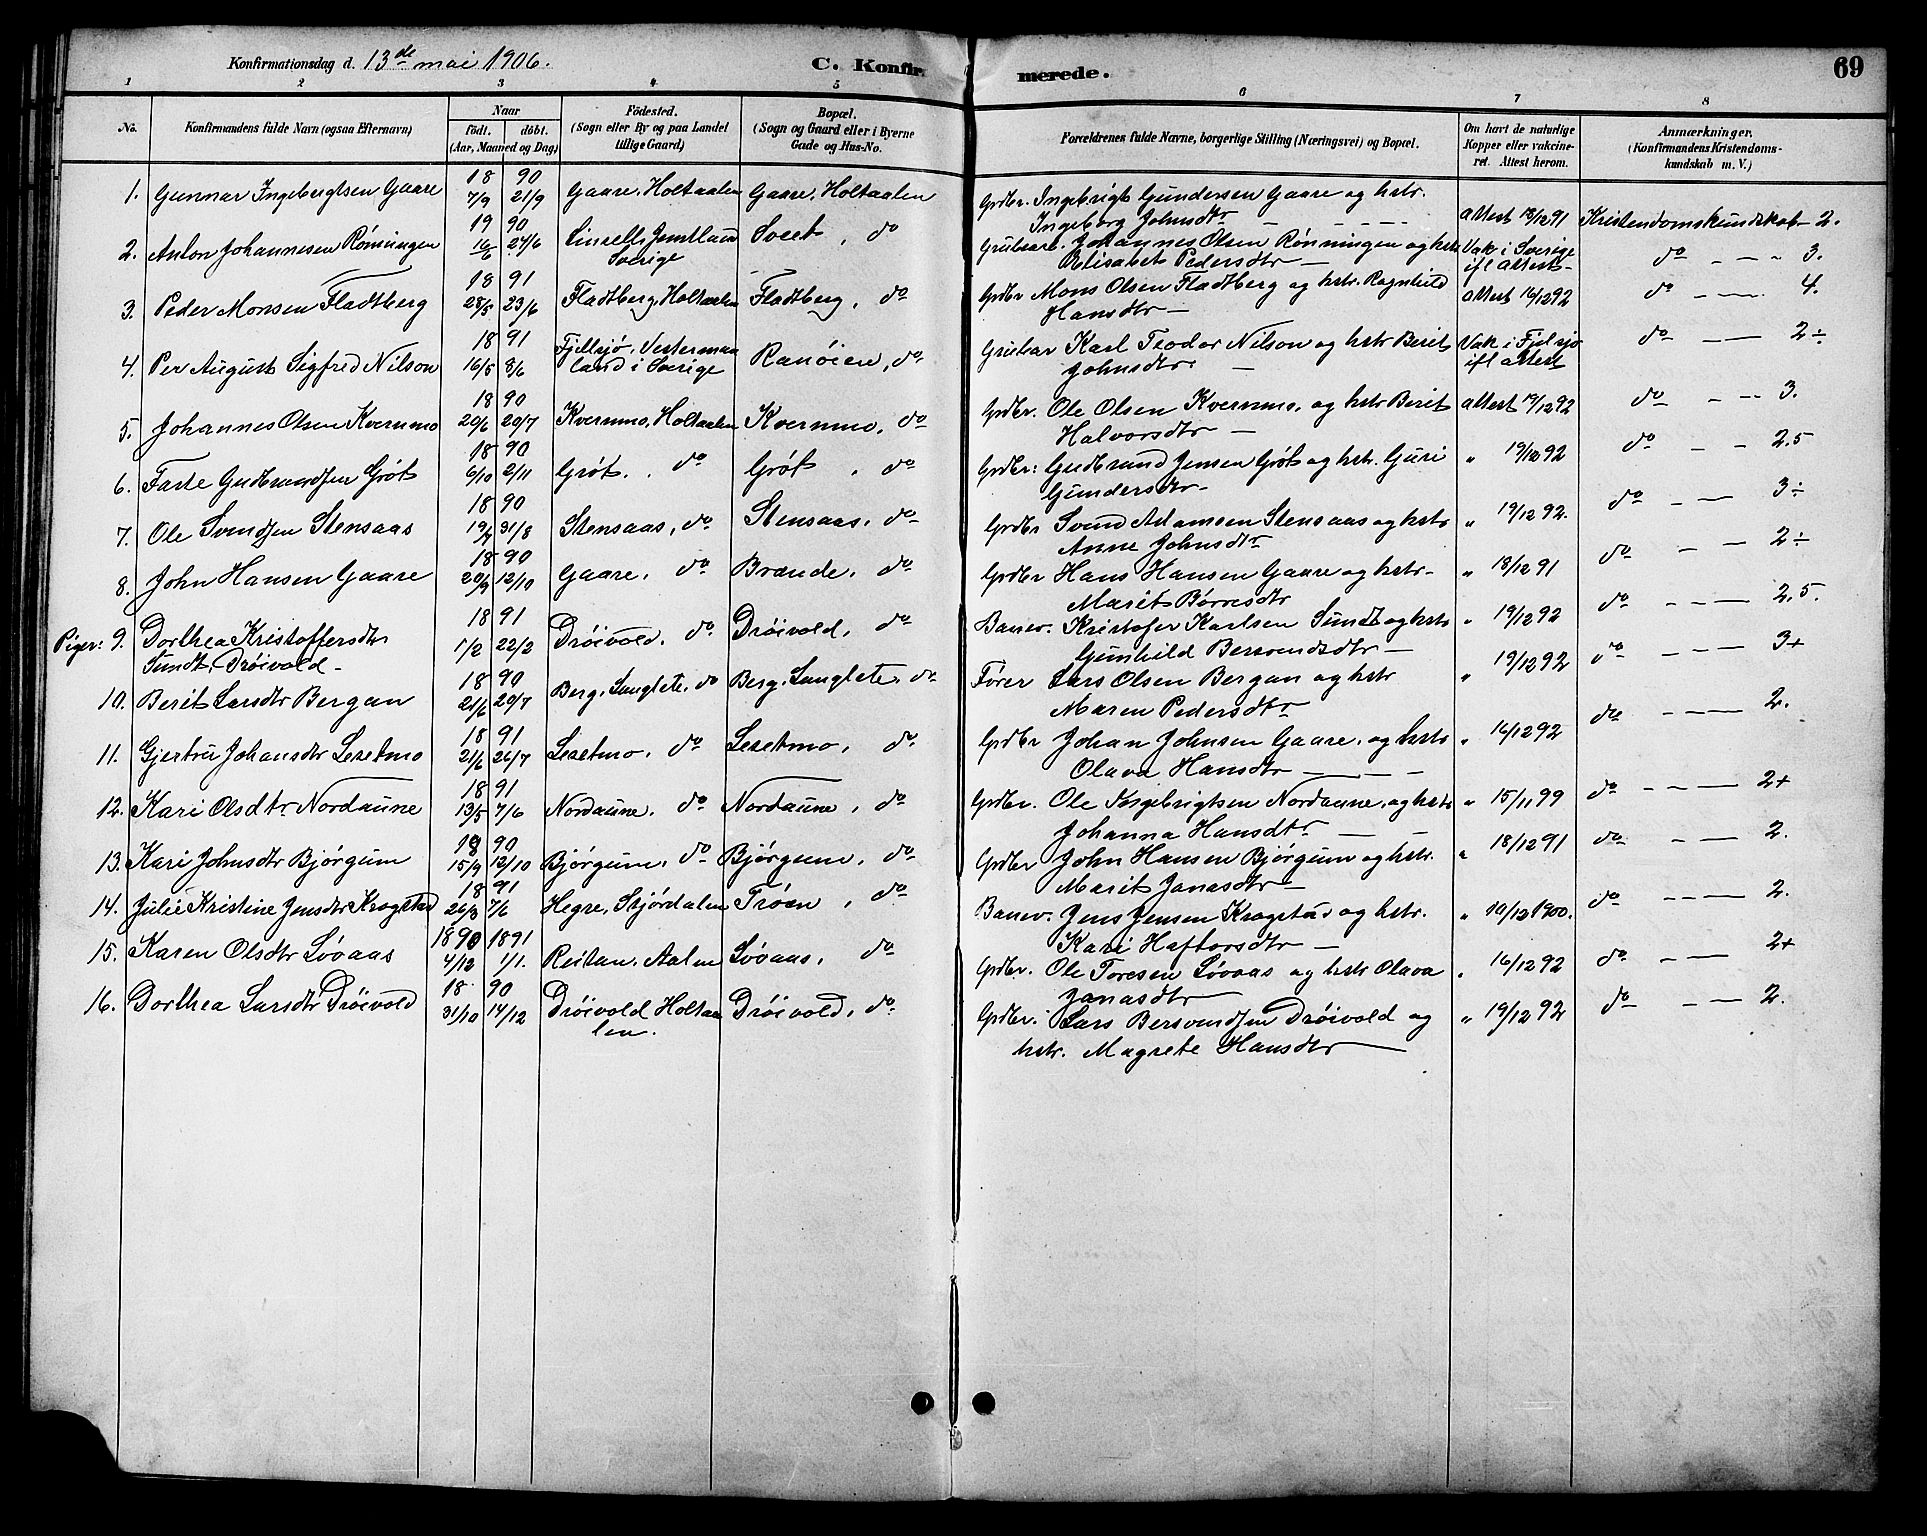 Konfirmationsdag d. 13de mai 1906.
C. Konfir merede.
69
1 2 3 4 5 6 7 8
No.
Konfirmandens fulde Navn (ogsaa Efternavn)
Naar
født. døbt.
(Aar, Maaned og Dag)
Fødested.
(Sogn eller By og paa Landet
tillige Gaard)
Bopæl.
(Sogn og Gaard eller i Byerne
Gade og Hus-No.
Forældrenes fulde Navne, borgerlige Stilling (Næringsvei) og Bopæl.
Om havt de naturlige
Kopper eller vakcine-
ret. Attest herom.
Anmærkninger.
(Konfirmandens Kristendoms-
kundskab m. V.)
18 90
1. Gunnar Ingebrigtsen Gaare 7/9 21/9 Gaare, Holtaalen Gaare, Holtaalen Grdbr. Ingebrigt Gundersen Gaare og hstr.
Ingeborg Johnsdtr — attest 18/12 91 Kristendomskundskab - 2.
19 90
2. Anton Johannesen Rønningen 16/6 24/6 Linsell, Jemtland Svet, do Grubearb. Johannes Olsen Rønningen og hstr
Sverige Elisabet Pedersdtr — Vak i Sverige
ifl attest - do - - - 3.
18 91
3. Peder Monsen Fladtberg 28/5 23/6 Fladtberg, Holtaalen Fladtberg, do Grdbr Mons Olsen Fladtberg og hstr. Ragnhild
Hansdtr — attest 16/12 92 do - - - 4.
18 91
4. Per August Sigfred Nilson 16/5 8/6 Fjellsjø, Vesterman Ranøien, do Grubar Karl Teodor Nilson og hstr Berit
land i Sverige Johnsdtr. — Vak i Fjelsjø
ifl attest do - — 2 ÷
18 90
5. Johannes Olsen Kvernmo 20/6 20/7 Kvernmo, Holtaalen Kvernmo, do Grdbr. Ole Olsen Kvernmo, og hstr Berit
Halvorsdtr — attest 19/12 92 do - - - 3.
18 90
6. Farte Gudbrandsen Grøt 6/10 2/11 Grøt, do Grøt, do Grdbr: Gudbrand Jensen Grøt og hstr. Guri
Gundersdtr - " 19/12 92 do - - 2.5
18 90
7. Ole Svendsen Stensaas 31/8 Stensaas, do Stensaas, do Grdbr Svend Adamsen Stensaas og hstr
Anne Johnsdtr " 19/12 92. do - — 3 ÷
18 90
8. John Hansen Gaare 20/9 12/10 Gaare, do Brænde, do Grdbr Hans Hansen Gaare og hstr-
Marit Børresdtr " 18/12 91 do - — 2 ÷
18 91
Piger: 9. Dorthea Kristoffersdtr 1/2 22/2 Drøivold, do Drøivold, do Banev. Kristofer Karlsen Sundt og hstr
Sundt, Drøivold - Gunhild Bersvendsdtr — " 19/12 92 do - - — 2.5.
18 90
10. Berit Larsdtr Bergan 21/6 20/7 Berg, Langlete, do Berg, Langlete, do Fører Lars Olsen Bergan og hstr
Maren Pedersdtr " 19/12 92 do - - — 3+
18 91
11. Gjertru Johansdtr Lesetmo 21/6 26/7 Lesetmo, do Lesetmo, do Grdbr Johan Johnsen Gaare, og hstr
Olava Hansdtr — " 16/12 92 do - - — 2.
18 91
12. Kari Olsdtr Nordaune 13/5 7/6 Nordaune, do Nordaune, do Grdbr. Ole Ingebrigtsen Nordaune, og hstr
Johanna Hansdtr — " 15/11 99 do - - - — 2+
18 90
13. Kari Johnsdtr Bjørgum 15/9 12/10 Bjørgum, do Bjørgum, do Grdbr John Hansen Bjørgum og hstr.
Marit Janasdtr — " 18/12 91 do - - — 2.
18 91
14. Julie Kristine Jensdtr Kragstad 26/3 7/6 Hegre, Stjørdalen Trøen, do Banev. Jens Jensen Kragstad og hstr.
Kari Haftorsdtr — " 10/12 1900. do - - — 2.
1890 1891
15. Karen Olsdtr Løvaas 4/12 1/1. Reitan, Aalen Løvaas, do Grdbr. Ole Toresen Løvaas og hstr Olava
Janasdtr " 16/12 92 do - — 2+
18 90
16. Dorthea Larsdtr Drøivold 31/10 14/12 Drøivold Holtaa Drøivold, do Grdbr. Lars Bersvendsen Drøivold og
len. hstr. Magrete Hansdtr — " 19/12 92 do - — 2.